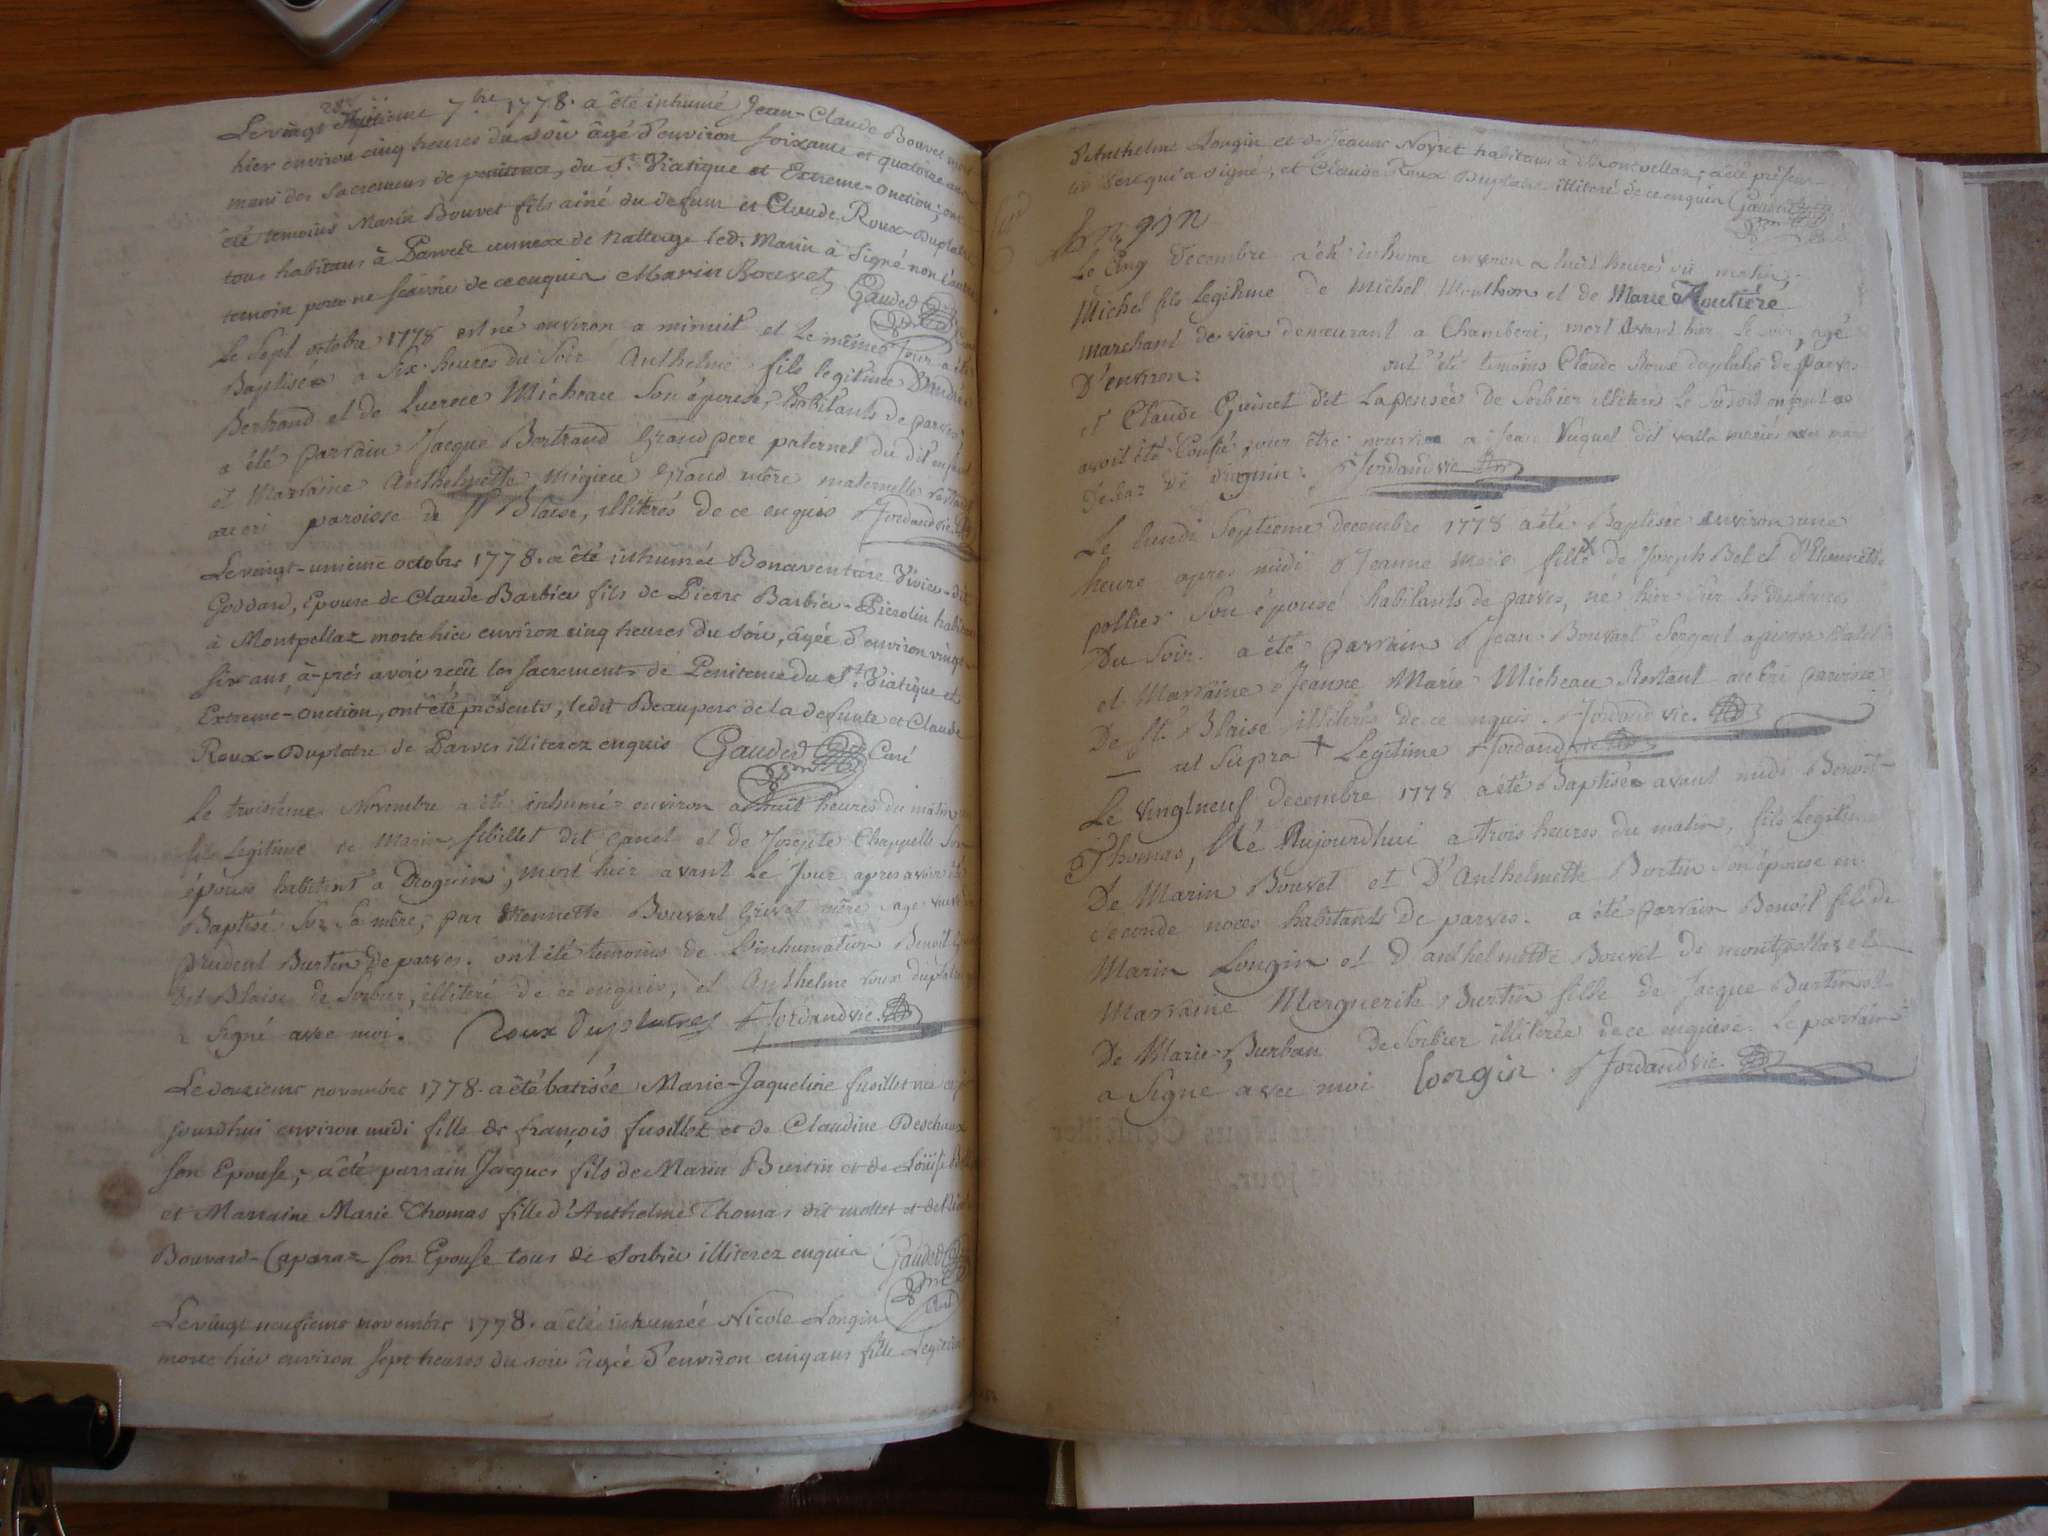 Le vingt huitieme 7.bre 1778. a été inhumé Jean-Claude Bouvet mort
hier environ cinq heures du soir âgé d'environ soixante et quatorze ans
muni des sacremens de penitence, du St. Viatique et Extreme-onction; ont
été temoins Marin Bouvet fils ainé du defunt et Claude Roux-Duplatre
tous habitans à Parves annexe de Nattage led. Marin à signé non l'autre
temoin pour ne sçavoir de ce enquis Marin Bouvet Gauded
Le sept octobre 1778 est né environ a minuit et le même jour a été
Baptisé a six heures du soir Anthelme fils legitime D'andré
Bertrand et de Lucrece Micheau son épouse, habitants de parves
a été parrain Jacque Bertrand grand pere paternel du dit enfant
et Marraine Anthelmette migieu grand mère maternelle restant
au cri paroisse de St Blaise, illitérés de ce enquis Jordand vic.
Le vingt-unieme octobre 1778. a été inhumée Bonaventure Vivier-dit
Goddard, Epouse de Claude Barbier fils de Pierre Barbier-Pierotin habitans
à Montpellaz morte hier environ cinq heures du soir, âgée d'environ vingt-
six ans, à-prés avoir reçû les sacrements de Penitence du St. Viatique et
Extreme-onction, ont été présents, ledit Beaupere de la defunte et Claude
Roux-Duplatre de Parves illiterez enquis Gauded Curé
Le troisième Novembre a été inhumé environ a huit heures du matin
fils legitime de Marin sibillet dit canet et de Josepte Chappelle son
épouse habitant a Droguin, mort hier avant le jour apres avoir été
Baptisé sur sa mère, par Etiennette Bouvart Grivet mère sage veuve de
prudent Burtin de parves. ont été temoins de l'inhumation Benoit
dit Blaise de Sorbier, illiteré de ce enquis, et Anthelme roux duplatre
a signé avec moi. Roux Duplatres Jordand vic.
Le douzieme novembre 1778. a été batisée Marie-Jaqueline fusillet née au
jourdhui environ midi fille de françois fusillet et de Claudine Deschaux
son Epouse, a été parrain Jacques fils de Marin Burtin et de Loüise
et Marraine Marie Thomas fille d'Anthelme Thomas dit mollet et de
Bouvard-Caparaz son Epouse tous de Sorbier illiterez enquis Gauded
Curé
Le vingt neufieme novembre 1778. a été inhumée Nicole Longin
morte hier environ sept heures du soir âgée d'environ cinq ans fille Legitime
d'Anthelme Longin et de Jeanne Noyret habitans à Montpellaz; a été présent
led. Pere qui a signé, et Claude Roux Duplatre illiteré de ce enquis Gauded
longin
Le Cinq Decembre a été inhumé environ a huit heures du matin,
Michel fils legitime de Michel Mouthon et de Marie Routière
Marchant de vin demeurant a Chamberi, mort avant hier le soir, agé
D'environ: ont été temoins Claude Roux duplatre de parves
et Claude Guinet dit Lapensée de Sorbier illitérés le susdit enfant
avoit été Confié pour être nourri a Jean Vuguet dit
de droguin: Jordand vic.
Le lundi septieme decembre 1778 a été Baptisée environ une
heure apres midi Jeanne Marie fille + de Joseph Bel et D'Etiennette
pollier son épouse habitants de parves, née hier sur les dix heures
Du soir. a été parrain Jean Bouvart
et Marraine Jeanne Marie Micheau Restant au Cri paroisse
De St. Blaise illitérés de ce enquis. Jordand vic.
ut supra + Legitime Jordand vic.
Le vingt neuf decembre 1778 a été Baptisé avant midi Benoit-
Thomas, Né Aujourdhui a trois heures du matin, fils Legitime
De Marin Bouvet et D'Anthelmette Burtin son épouse en
seconde noces habitants de parves. a été parrain Benoit fils de
Marin Longin et d'anthelmette Bouvet de montpellaz et
Marraine Marguerite Burtin fille de Jacque Burtin et
De Marie Burban de Sorbier illiterée de ce enquise. Le parrain
a signe avec moi longin. Jordand vic.